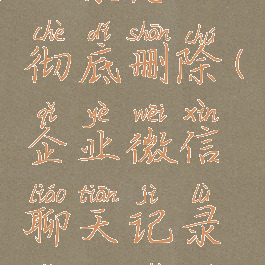 chè dǐ shān chú
彻底删除(
qǐ yè wēi xìn
企业微信
liáo tiān jì lù
聊天记录